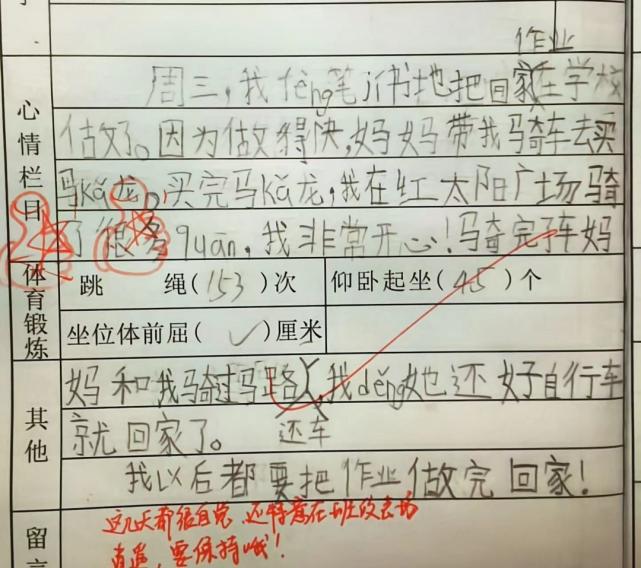 作业
周三，我fèng笔jì书地把回家在学校
做了。因为做得快，妈妈带我骑车去买
马kǎ龙，买完马kǎ龙，我在红太阳广场骑
了很多quān，我非常开心！骑完车妈
心情栏目
跳 绳(153)次 仰卧起坐(45)个
坐位体前屈(✓)厘米
体育锻炼
妈和我骑过马路，我děng她还好自行车
还车
就回家了。
我以后都要把作业做完回家！
其他
这几天都很自觉，还特意在班
要保持哦！
留言